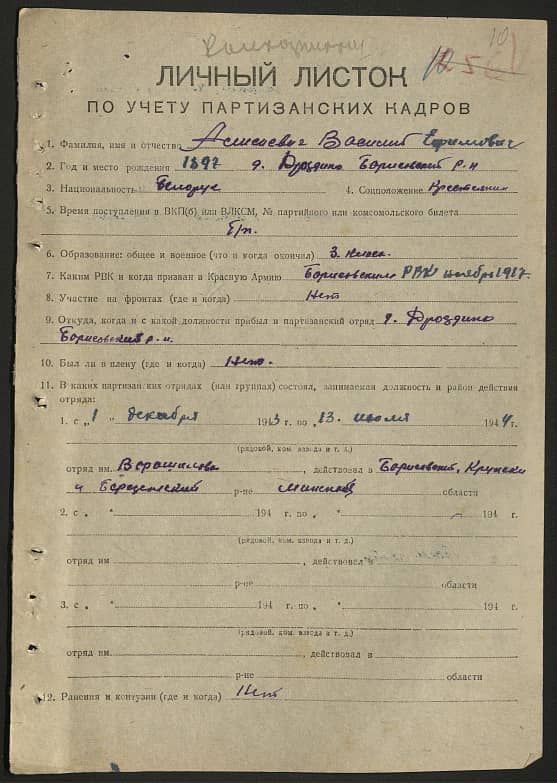 10
ЛИЧНЫЙ ЛИСТОК
ПО УЧЕТУ ПАРТИЗАНСКИХ КАДРОВ
1. Фамилия, имя и отчество Василий Ефимович
2. Год и место рождения 1897 д. Дроздино Борисовский р-н
3. Национальность Белорус 4. Соцположение Крестьянин
5. Время поступления в ВКП(б) или ВЛКСМ, № партийного или комсомольского билета
б/п.
6. Образование: общее и военное (что и когда окончил) 3. класса.
7. Каким РВК и когда призван в Красную Армию Борисовским РВК ноябрь 1917.
8. Участие на фронтах (где и когда) Нет
9. Откуда, когда и с какой должности прибыл в партизанский отряд д. Дроздино
Борисовский р-н.
10. Был ли в плену (где и когда) Нет.
11. В каких партизанских отрядах (или группах) состоял, занимаемая должность и район действия
отряда:
1. с „1" декабря 1943 г. по „13. июля 1944 г.
(рядовой, ком. взвода и т. д.)
отряд им. Ворошилова, действовал в Борисовский, Крупский
и р-не Минской области
2. с „ " 194 г. по „ " 194 г.
(рядовой, ком. взвода и т. д.)
отряд им , действовал в
р-не области
3. с „ " 194 г. по „ " 194 г.
(рядовой, ком. взвода и т. д.)
отряд им. , действовал в
р-не области
12. Ранения и контузии (где и когда) Нет